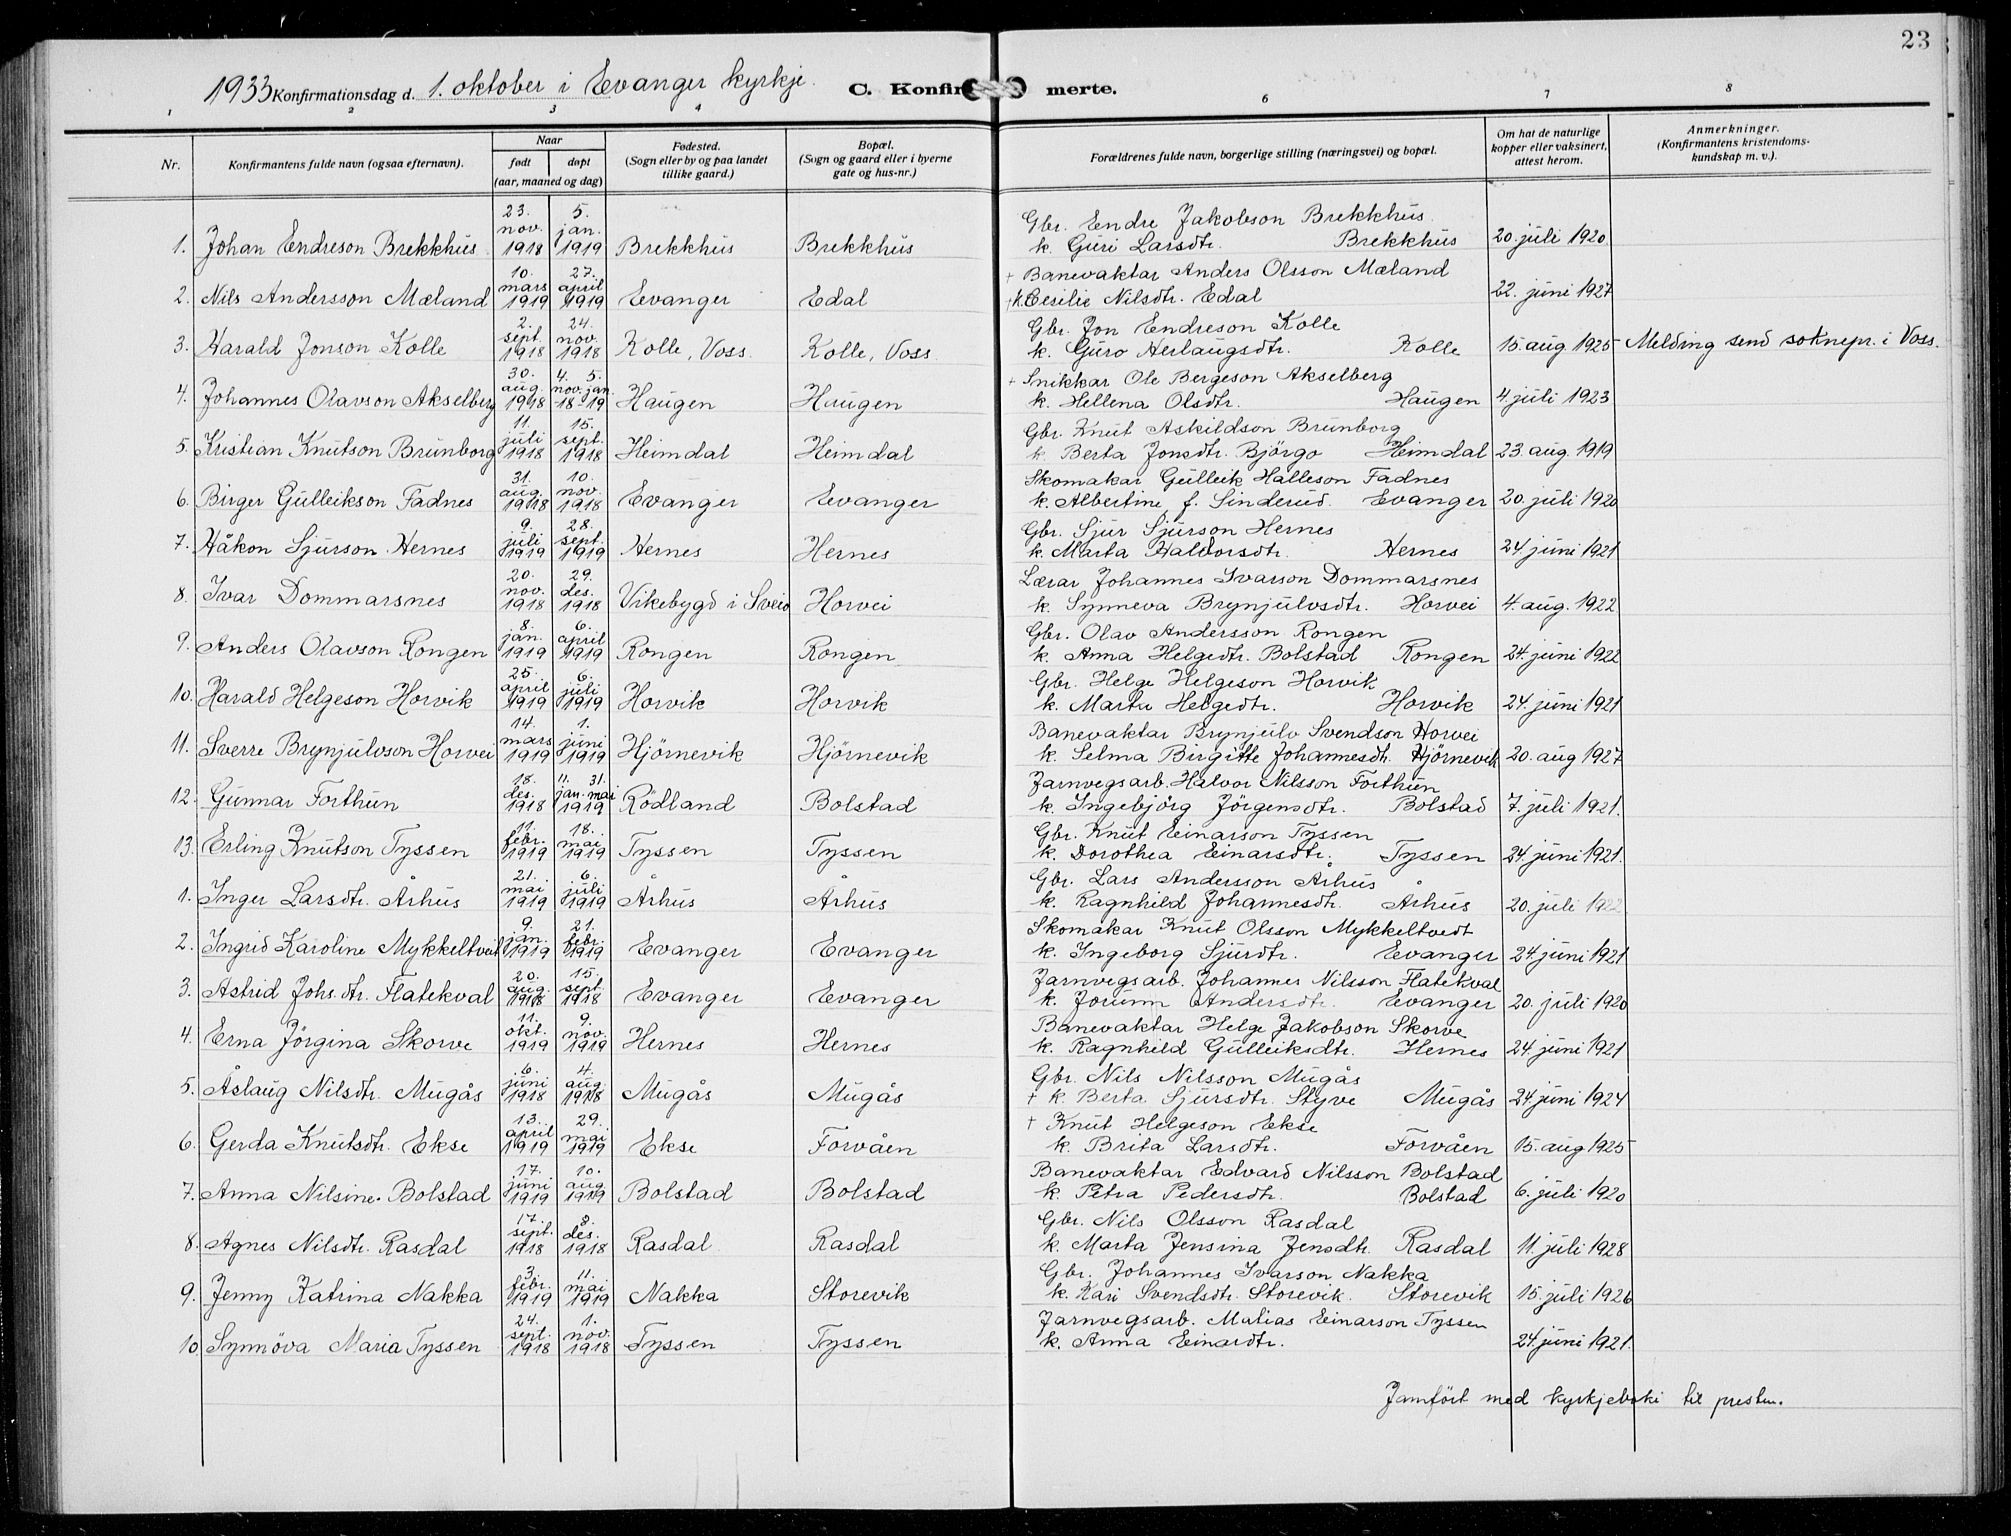 23
1933 Konfirmationsdag d. 1. oktober i Evanger kyrkje. C. Konfir merte.
1 2 3 4 6 7 8
Nr. Konfirmantens fulde navn (ogsaa efternavn). Naar født døpt (aar, maaned og dag) Fødested. (Sogn eller by og paa landet tillike gaard.) Bopæl. (Sogn og gaard eller i byerne gate og hus-nr.) Forældrenes fulde navn, borgerlige stilling (næringsvei) og bopæl. Om hat de naturlige kopper eller vaksinert, attest herom. Anmerkninger. (Konfirmantens kristendoms-kundskap m. v.).
1. Johan Endreson Brekkhus 23. nov. 1918 5. jan. 1919 Brekkhus Brekkhus Gbr. Endre Jakobson Brekkhus. k. Guri Larsdtr. Brekkhus 20. juli 1920
2. Nils Andersson Mæland 10. mars 1919 27. april 1919 Evanger Edal + Banevaktar Anders Olsson Mæland +k. Cesilie Nilsdtr. Edal 22. juni 1927
3. Harald Jonson Kolle 2. sept. 1918 24. nov. 1918 Kolle, Voss. Kolle, Voss Gbr. Jon Endreson Kolle k. Guro Herlaugsdtr. Kolle 15. aug 1925 Melding send soknepr. i Voss.
4. Johannes Olavson Akselberg 30. aug. 1918 4. 5. nov. jan. 18-19 Haugen Haugen + Snikkar Ole Bergeson Akselberg k. Hellena Olsdtr. Haugen 4. juli 1923
5. Kristian Knutson Brunborg 11. juli 1918 15. sept. 1918 Heimdal Heimdal Gbr. Knut Askildson Brunborg k. Berta Jonsdtr. Björgo Heimdal 23. aug. 1919
6. Birger Gulleikson Fadnes 31. aug. 1918 10. nov. 1918 Evanger Evanger Skomakar Gulleik Halleson Fadnes k. Albertine f. Sinderud. Evanger 20. juli 1920
7. Håkon Sjurson Hernes 9. juli 1919 28. sept. 1919 Hernes Hernes Gbr. Sjur Sjurson Hernes k. Marta Haldorsdtr. Hernes 24 juni 1921
8. Ivar Dommarsnes 20. nov. 1918 29. des. 1918 Vikebygd i Sveio Horvei Lærar Johannes Ivarson Dommarsnes k. Synneva Brynjulvsdtr. Horvei 4. aug. 1922
9. Anders Olavson Rongen 8. jan. 1919 6. april 1919 Rongen Rongen Gbr. Olav Andersson Rongen k. Anna Helgedtr. Bolstad Rongen 24. juni 1922
10. Harald Helgeson Horvik 25. april 1919 6. juli 1919 Horvik Horvik Gbr. Helge Helgeson Horvik k. Marta Helgedtr. Horvik 24. juni 1921
11. Sverre Brynjulvson Horvei 14. mars 1919 1. juni 1919 Hjörnevik Hjörnevik Banevaktar Brynjulv Svendson Horvei k. Selma Birgitte Johannesdtr. Hjörnevik 20. aug 1927
12. Gunnar Forthun 18. des. 1918 11. 31. jan. mai 1919 Rödland Bolstad Jarnvegsarb. Halvor Nilsson Forthun k. Ingebjörg Jörgensdtr. Bolstad 7. juli 1921.
13. Erling Knutson Tyssen 11. febr. 1919 18. mai 1919 Tyssen Tyssen Gbr. Knut Einarson Tyssen k. Dorothea Einarsdtr. Tyssen 24. juni 1921.
1. Inger Larsdtr. Århus 21. mai 1919 6. juli 1919 Århus Århus Gbr. Lars Andersson Århus k. Ragnhild Johannesdtr. Århus 20. juli 1922
2. Ingrid Karoline Mykkeltveit 9. jan. 1919 21. febr. 1919 Evanger Evanger Skomakar Knut Olsson Mykkeltvedt k. Ingeborg Sjurdtr. Evanger 24 juni 1921
3. Astrid Johs. dtr. Flatekval 20. aug. 1918 15. sept. 1918 Evanger Evanger Jarnvegsarb. Johannes Nilsson Flatekval k. Jorunn Andersdtr. Evanger 20. juli 1920
4. Erna Jörgina Skorve 11. okt. 1919 9. nov. 1919 Hernes Hernes Banevaktar Helge Jakobson Skorve k. Ragnhild Gulleiksdtr. Hernes 24. juni 1921
5. Åslaug Nilsdtr. Mugås 6. juni 1918 4. aug. 1918 Mugås Mugås Gbr. Nils Nilsson Mugås + k. Berta Sjursdtr. Styve Mugås 24 juni 1924
6. Gerda Knutsdtr. Ekse 13. april 1919 29. mai 1919 Ekse Forvåen + Knut Helgeson Ekse k. Brita Larsdtr. Forvåen 15. aug 1925
7. Anna Nilsine Bolstad 17. juni 1919 10. aug 1919 Bolstad Bolstad Banevaktar Edvard Nilsson Bolstad k. Petra Pedersdtr. Bolstad 6. juli 1920
8. Agnes Nilsdtr. Rasdal 17. sept. 1918 8. des. 1918 Rasdal Rasdal Gbr. Nils Olsson Rasdal k. Marta Jensina Jensdtr. Rasdal 11. juli 1928
9. Jenny Katrina Nakka 3. febr. 1919 11. mai 1919 Nakka Storevik Gbr. Johannes Ivarson Nakka k. Kari Svendsdtr. Storevik. Storevik 15. juli 1926
10 Synnöva Maria Tyssen 24. sept. 1918 1. nov. 1918 Tyssen Tyssen Jarnvegsarb. Matias Einarson Tyssen k. Anna Einardtr. 24. juni 1921.
Jamfört med kyrkjeboki til presten.